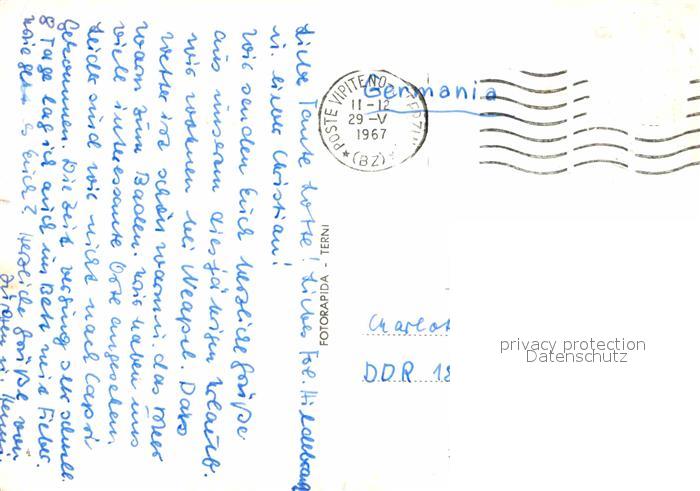 Liebe Tante Lotte! Liebes Frl. Hildebrand
u. lieber Christian!
Wir senden Euch herzliche Grüße
aus unserem diesjährigen Urlaub.
Wir wohnen bei Neapel. Das
Wetter ist schön warm u. das Meer
warm zum Baden. Wir haben uns
viele interessante Orte angesehen.
Leider sind wir nicht nach Capri
gekommen. Die Zeit verging sehr schnell.
8 Tage lag ich auch im Bett mit Fieber.
Wie geht es Euch? Herzliche Grüße von
Jürgen u.
FOTORAPIDA - TERNI
POSTE VIPITENO
11-12
29-V
1967
(BZ)
Germania
Charlot
DDR 18
privacy protection
Datenschutz